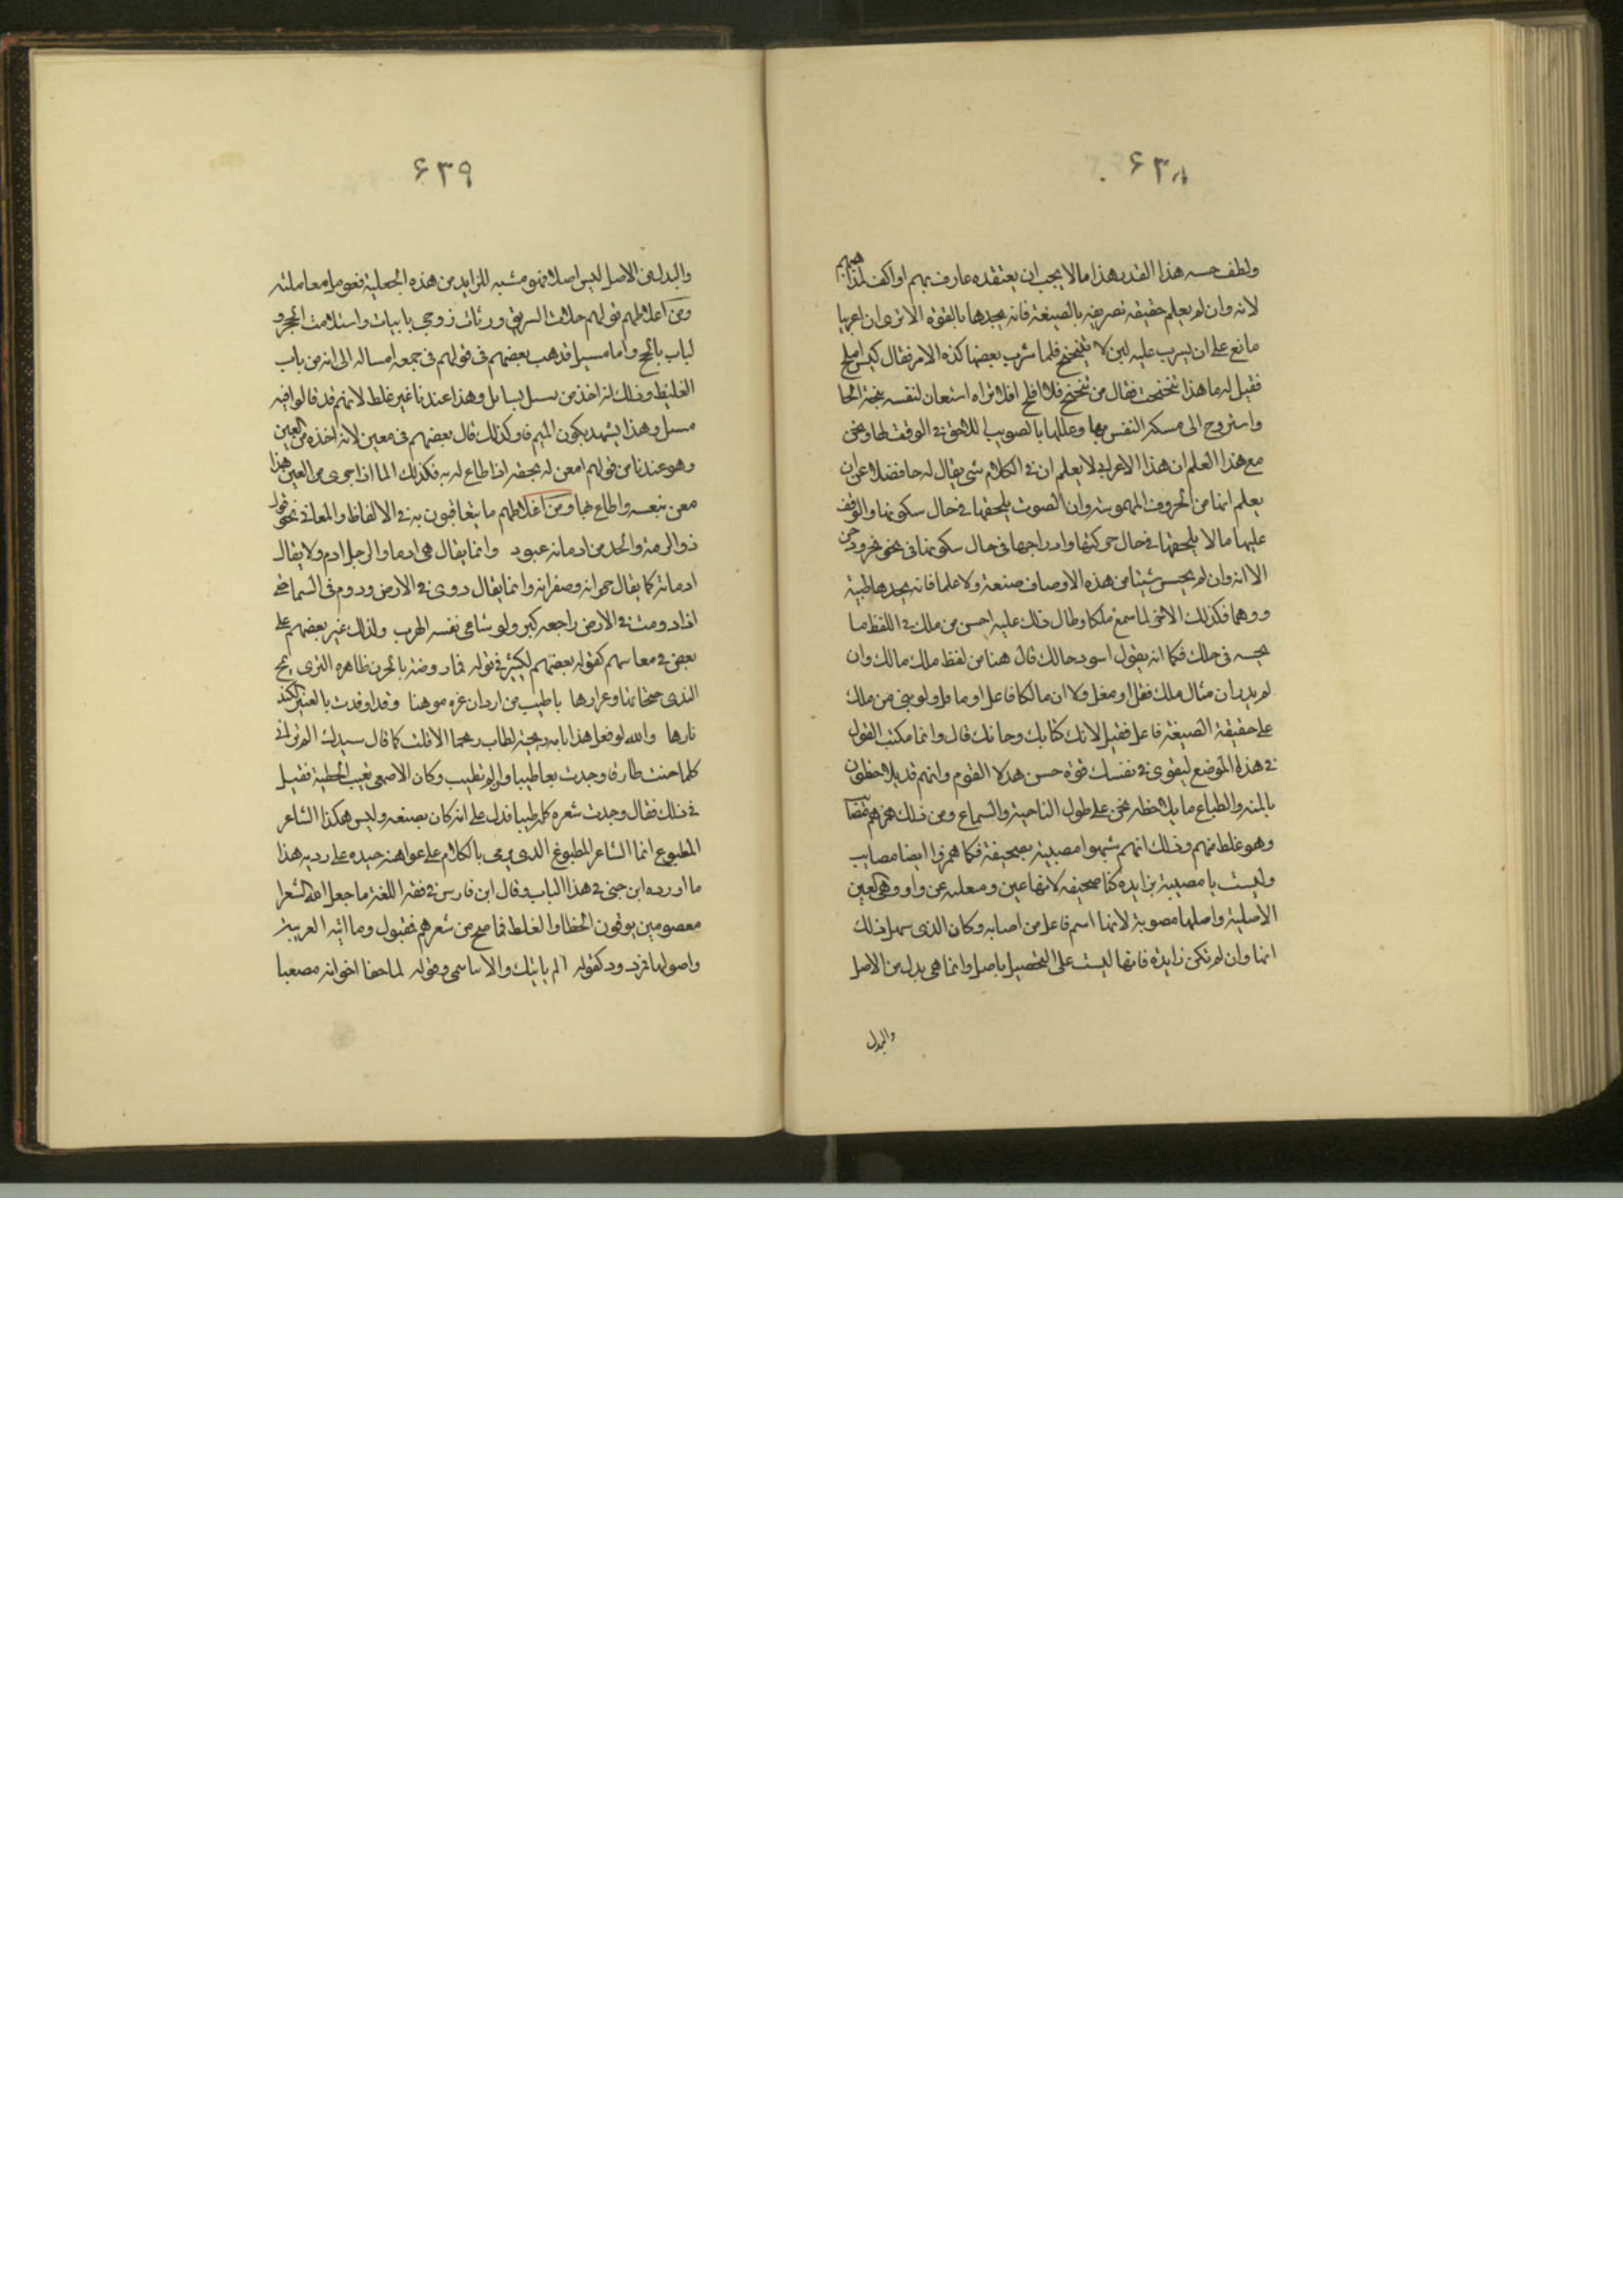 ٤٣٨
ولطف حسه هذا القدر هذا ما لا يجب ان يعتقده عارف بهم او اكف لمذاهبهم
لانه وان لم يعلم حقيقة تصريفه بالصيغة فانه يجدها بالقوة الا ترى ان اعرابيا
مانع على ان يشرب علبة لبن لا يتنحنح فلما شرب بعضها كده الامر فقال كبش املح
فقيل له ما هذا تنحنحت فقال من تنحنح فلا افلح افلا تراه استعان لنفسه ببحة الحا
واستروح الى مسكة النفس بها وعللها بالصويت اللاحق في الوقف لها ونحن
مع هذا نعلم ان هذا الاعرابي لا يعلم ان في الكلام شي يقال له حا فضلا عن ان
يعلم انها من الحروف المهموسة وان الصوت يلحقها في حال سكونها والوقف
عليها ما لا يلحقها في حال حركتها وادراجها في حال سكونها في نحو بحر ودحن
الا انه وان لم يحسن شيئا من هذه الاوصاف صنعة ولا علما فانه يجدها طبيعة
ووهما فكذلك الاخر لما سمع ملكا وطال ذلك عليه احسن من ملك في اللفظ ما
يحسه في حلك فكما انه يقول اسود حالك قال هنا من لفظ ملك مالك وان
لم يدر ان مثال ملك فعل او مفعل ولا ان مالكا فاعل او مافل ولو بني من ملك
على حقيقة الصيغة فاعل فقيل لائك كبائك وحائك قال وانما مكنت القول
في هذا الموضع ليقوى في نفسك قوة حس هولا القوم وانهم قد يلاحظون
بالمنة والطباع ما يلاحظه نحن على طول المباحثة والسماع ومن ذلك همزهم مصائب
وهو غلط منهم وذلك انهم شبهوا مصيبة بصحيفة فكما همزوا ايضا مصايب
وليست يا مصيبة بزايدة كيا صحيفة لانها عين ومنقلبة عن واو وهي العين
الاصلية واصلها مصوبة لانها اسم فاعل من اصاب وكان الذي سهل ذلك
انها وان لم تكن زايدة فانها ليست على التحصيل باصل وانما هي بدل من الاصل
والبدل
٤٣٩
والبدل من الاصل ليس اصلا فهو مشبه للزايد من هذه الجهلية فعومل معاملته
ومن اغلاطهم قولهم حلات السويق ورثات زوجي بابيات واستلامت الحجر و
لبات بالحج واما مسيل فذهب بعضهم في قولهم في جمعه امسله الى انه من باب
الغلط وذلك لانه اخذ من سيل يسيل وهذا عندنا غير غلط لانهم قد قالوا فيه
مسل وهذا يشهد بكون الميم فا وكذلك قال بعضهم في معين لانه اخذه من العين
وهو عندنا من قولهم امعن له بحقه اذا طاع له به فكذلك الما اذا جرى من العين هذا
معن بنفسه واطاع بها ومن اغلاطهم ما يتعايبون به في الالفاظ والمعاني نحو قول
ذو الرمة والجيد من ادمانة عبود وانما يقال هي ادما والرجل ادم ولا يقال
ادمانة كما يقال حمرانة وصفرانة وانما يقال دوى في الارض ودوم في السما نحو
اذا دومت في الارض راجعه كبر ولو شا نجى نفسه الهرب ولذلك غير بعضهم على
بعض في معانيهم كقول بعضهم لكثير في قوله فما روضة بالحزن طاهرة الثرى يمج
الندى جثجاثها وعرارها باطيب من اردان عزة موهنا وقد اوقدت بالعنبر اللدن
نارها والله لو فعل هذا بامة زنجية لطاب ريحها الا قلت كما قال سيدك الم ترياني
كلما جئت طارقا وجدت بها طيبا ولم تطيب وكان الاصمعي يعيب الحطية فقيل
في ذلك فقال وجدت شعره كله طيبا فدل على انه كان يصنعه وليس هكذا الشاعر
المطبوع انما الشاعر المطبوع الذي يرمي بالكلام على عواهنه جيده على رديه هذا
ما اورده ابن جني في هذا الباب وقال ابن فارس في فقه اللغة ما جعل الله الشعرا
معصومين يوقون الخطا والغلط فما صح من شعرهم فمقبول وما ابته العربية
واصولها فمردود كقوله الم ياتيك والانبا تنمي وقوله لما جفا اخوانه مصعبا